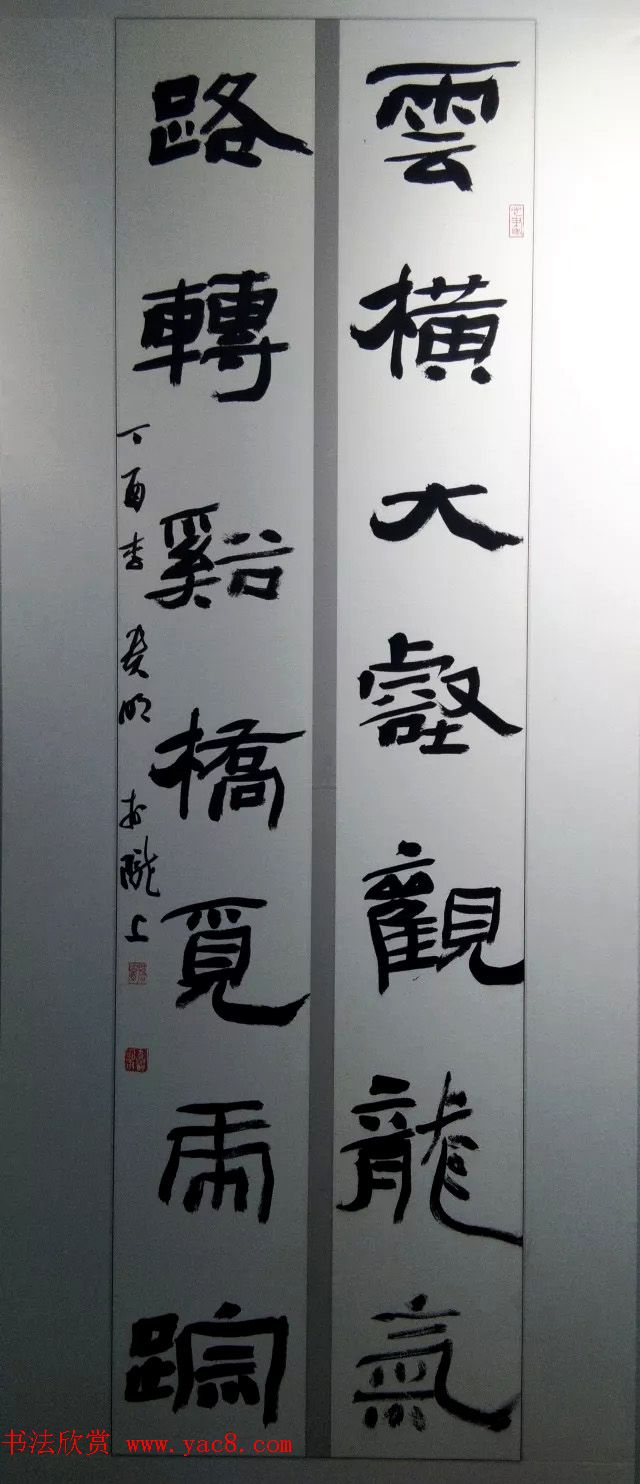 雲橫大壑觀龍氣
路轉谿橋覓虎踪
丁酉李贵明於隴上
书法欣赏 www.yac8.com